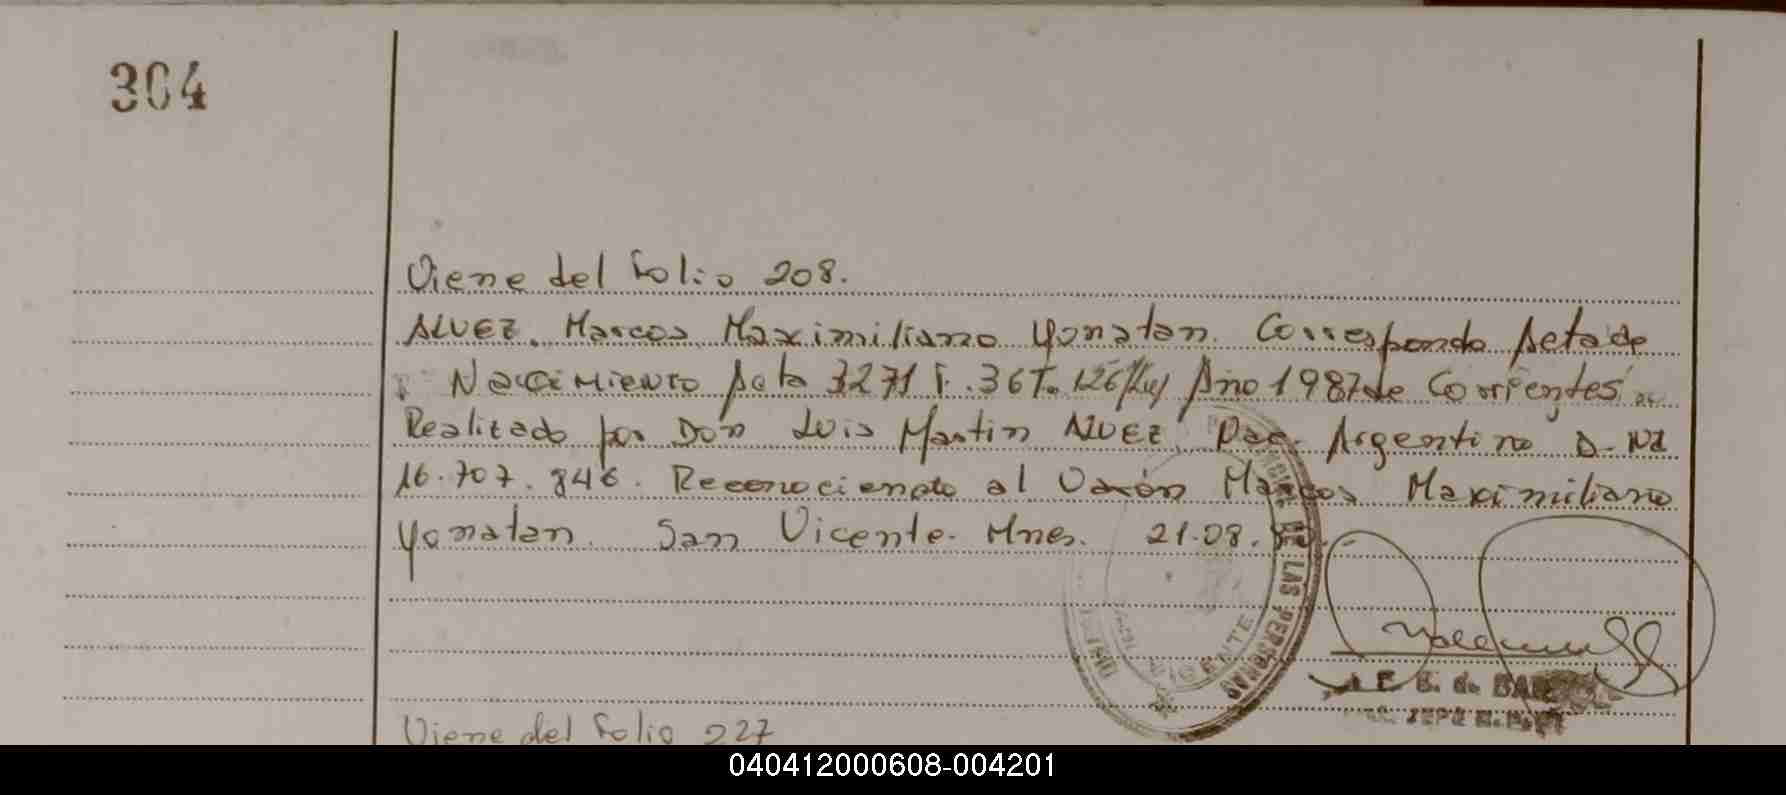 304
Viene del Folio 208.
ALVEZ. Marcos Maximiliano Yonatan. Corresponde Acta de
Nacimiento Acta 3271 F. 36 T. 126 Año 1987 de Corrientes
Realizado por Don Luis Martin ALVEZ Nac. Argentino D.NI
16.707.846. Reconociendo al Varón Marcos Maximiliano
Yonatan. San Vicente. Mnes. 21.08.
DE LAS PERSONAS
VICENTE
Viene del Folio 227
040412000608-004201